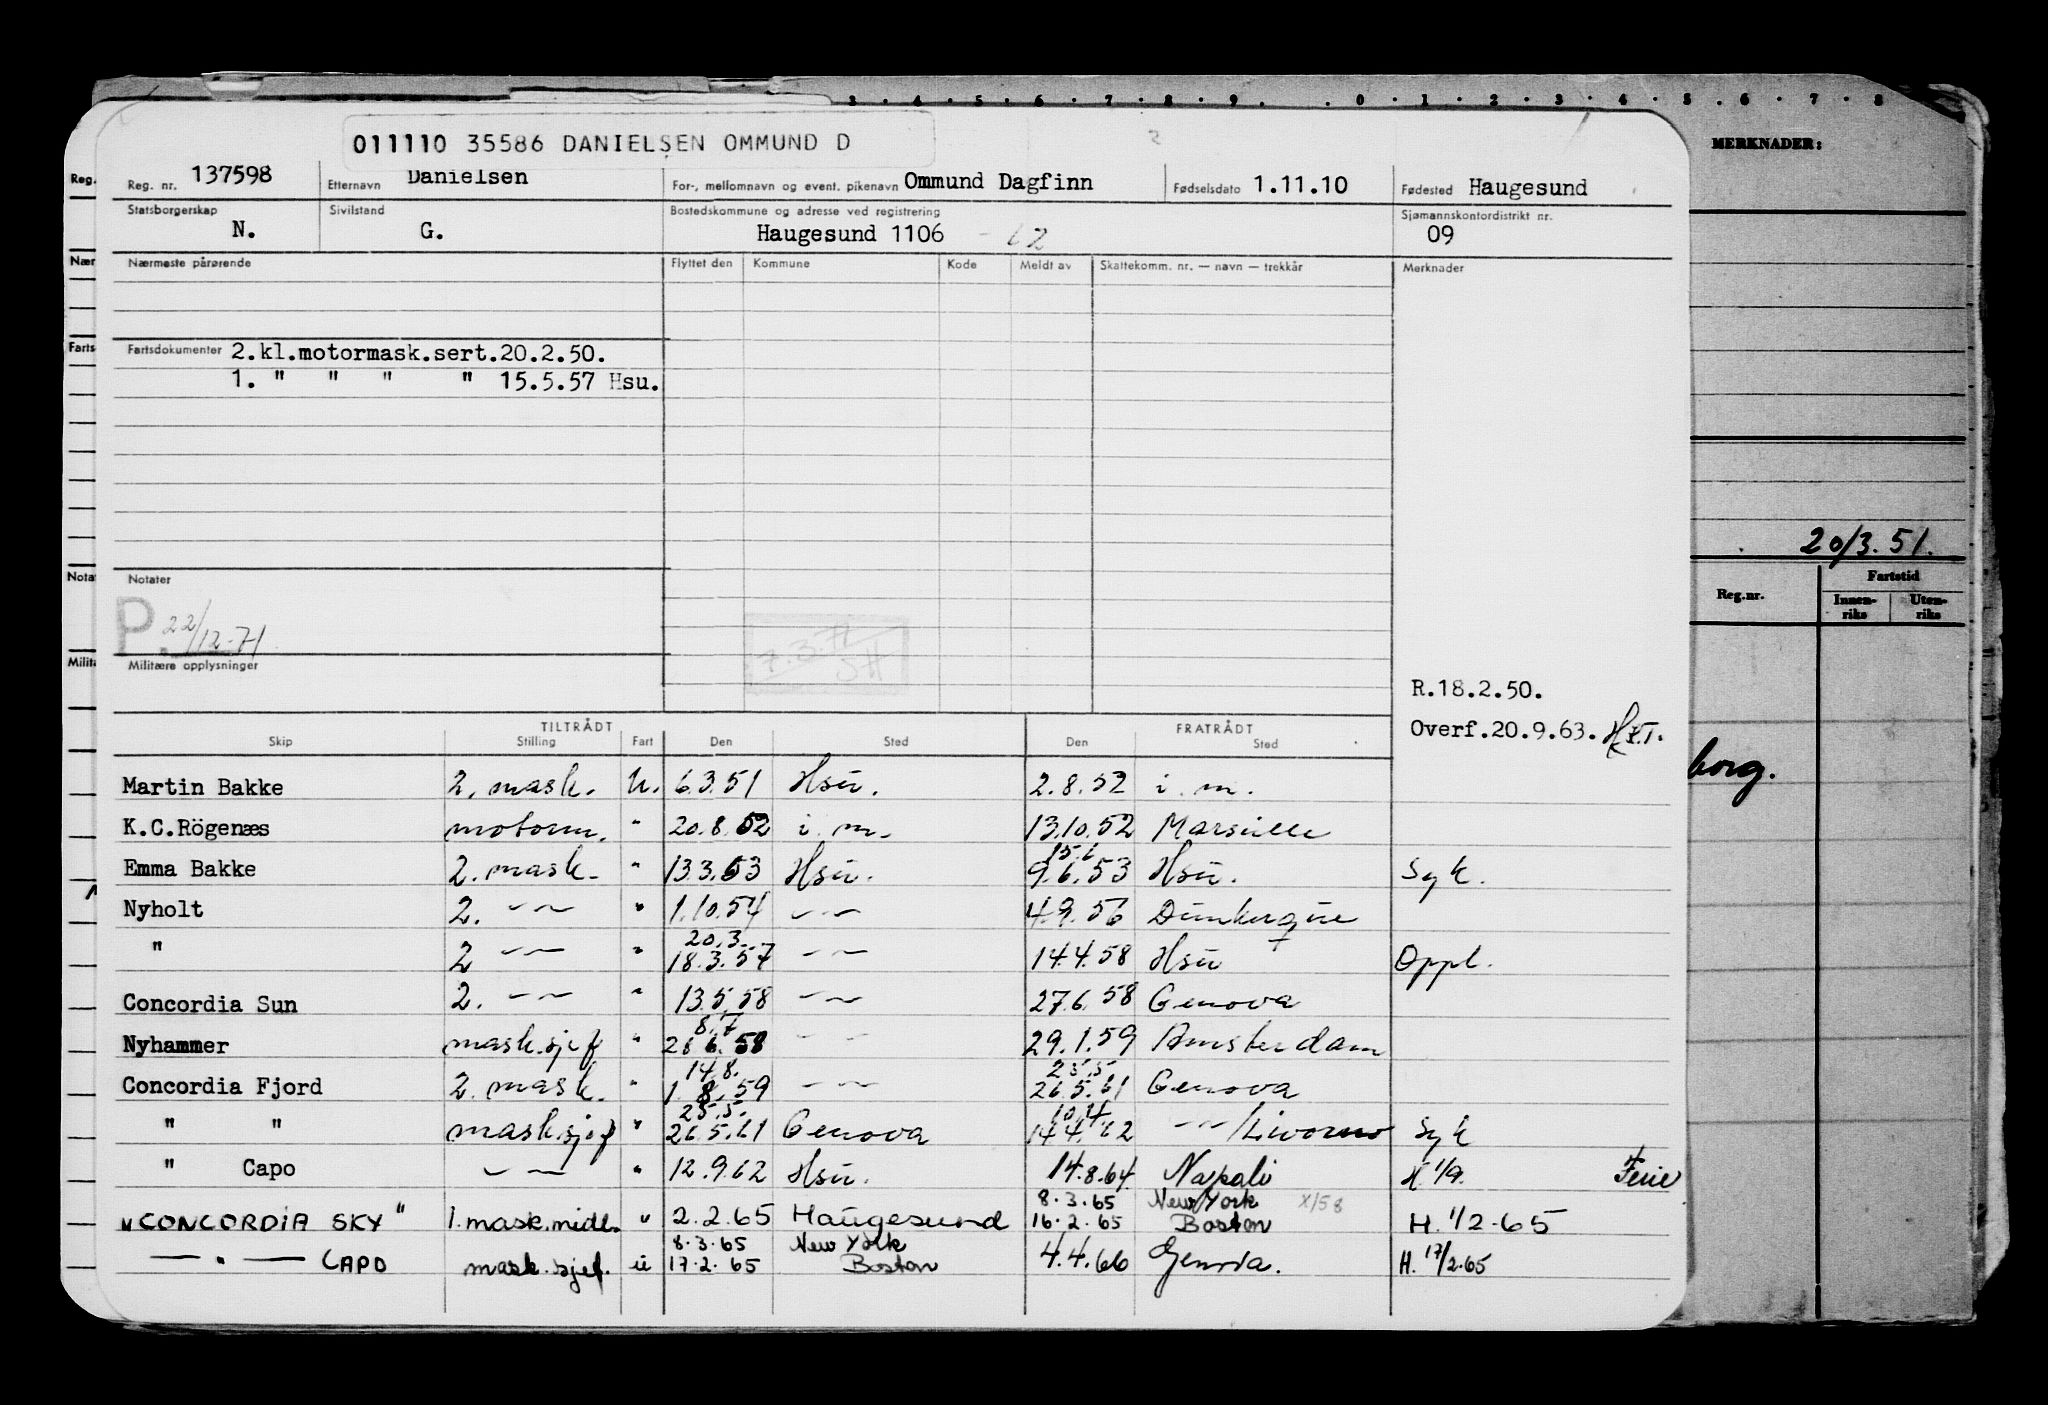 3 . 4 . 5 . 6 . 7 . 8 . 9 . . 0 . 1 . 2 . 3 . 4 . 5 . 6 . 7 . 8
MERKNADER:
011110 35586 DANIELSEN OMMUND D
2
Reg. Reg. nr. 137598 Etternavn Danielsen For-, mellomnavn og event. pikenavn Ommund Dagfinn Fødselsdato 1.11.10 Fødested Haugesund
Statsborgerskap Sivilstand Bostedskommune og adresse ved registrering Sjømannskontordistrikt nr.
N. G. Haugesund 1106 - 62 09
Nær Nærmeste pårørende Flyttet den Kommune Kode Meldt av Skattekomm. nr. — navn — trekkår Merknader
Farts Fartsdokumenter 2.kl.motormask.sert.20.2.50.
1. " " " " 15.5.57 Hsu.
20/3.51.
Nota Notater
Reg.nr. Fartstid
Innen-riks Uten-riks
P. 22/12-71
7.3.72 SH
Milita Militære opplysninger
R.18.2.50.
Overf.20.9.63.
TILTRÅDT FRATRÅDT
Skip Stilling Fart Den Sted Den Sted
borg.
Martin Bakke 2. mask. U. 6.3.51 Hsu. 2.8.52 i. m.
K.C.Rögenæs motorm. " 20.8.52 i. m. 13.10.52 Marseille
15.6
Emma Bakke 2. mask. " 13.3.53 Hsu. 9.6.53 Hsu. Syk.
Nyholt 2. —〃— " 1.10.54 —〃— 4.9.56 Dunkerque
20.3.
" 2 —〃— " 18.3.57 —〃— 14.4.58 Hsu Oppl.
Concordia Sun 2. —〃— " 13.5.58 —〃— 27.6.58 Genova
8.7
Nyhammer mask.sjef " 28 6.58 —〃— 29.1.59 Amsterdam
14.8. 25.5
Concordia Fjord 2. mask. " 1.8.59 —〃— 26.5.61 Genova
25.5. 10.4
" " mask.sjef " 26.5.61 Genova 14.4.62 —〃—/Livorno Syk
" Capo —〃— " 12.9.62 Hsu. 14.8.64 Napoli H. 1/9. Ferie
8.3.65 New York X/58
"CONCORDIA SKY" 1. mask.midl. " 2.2.65 Haugesund 16.2.65 Boston H. 1/2-65
8.3.65 New York
— " — CAPO mask.sjef. u 17.2.65 Boston 4.4.66 Genova. H. 17/2-65